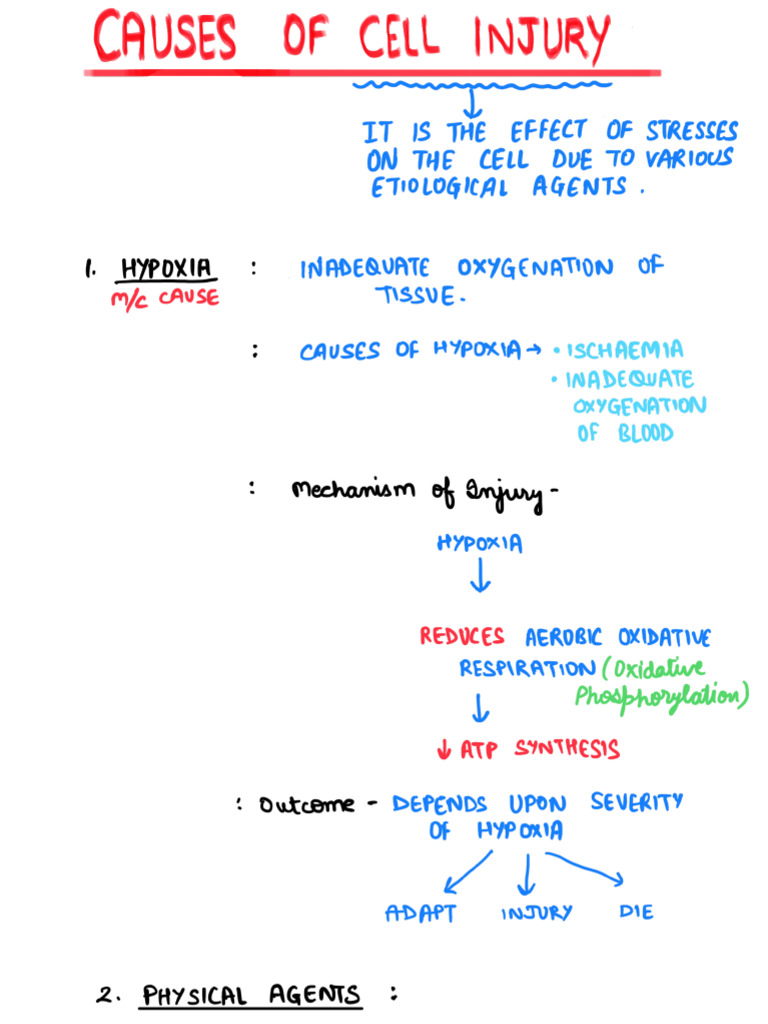 CAUSES OF CELL INJURY
↓
IT IS THE EFFECT OF STRESSES
ON THE CELL DUE TO VARIOUS
ETIOLOGICAL AGENTS.
1. HYPOXIA : INADEQUATE OXYGENATION OF
M/C CAUSE TISSUE.
: CAUSES OF HYPOXIA → • ISCHAEMIA
• INADEQUATE
OXYGENATION
OF BLOOD
: Mechanism of Injury -
HYPOXIA
↓
REDUCES AEROBIC OXIDATIVE
RESPIRATION (Oxidative
Phosphorylation)
↓
↓ ATP SYNTHESIS
: Outcome - DEPENDS UPON SEVERITY
OF HYPOXIA
ADAPT INJURY DIE
2. PHYSICAL AGENTS :